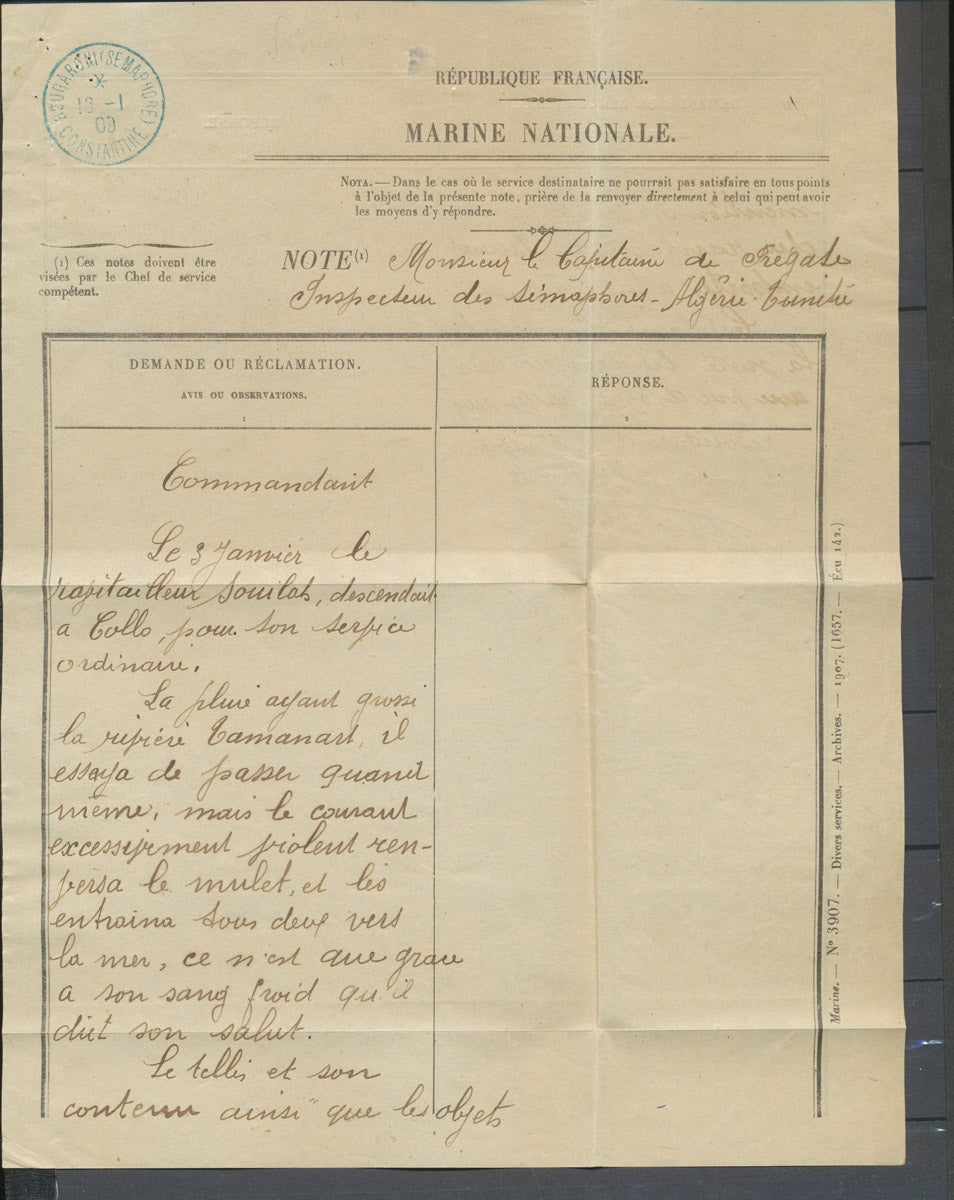 BOUGARONI (SEMAPHORE)
*
13 -1
09
CONSTANTINE
RÉPUBLIQUE FRANÇAISE.
MARINE NATIONALE.
NOTA. — Dans le cas où le service destinataire ne pourrait pas satisfaire en tous points
à l'objet de la présente note, prière de la renvoyer directement à celui qui peut avoir
les moyens d'y répondre.
(1) Ces notes doivent être
visées par le Chef de service
compétent.
NOTE (1) Monsieur le Capitaine de Frégate
Inspecteur des Sémaphores - Algérie Tunisie
DEMANDE OU RÉCLAMATION.
AVIS OU OBSERVATIONS.
1
RÉPONSE.
2
Commandant
Le 3 Janvier le
rapitailleur Souilah, descendait
a Collo, pour son service
ordinaire.
La pluie ayant grossi
la rivière Tamanart, il
essaya de passer quand
même, mais le courant
excessivement violent ren-
versa le mulet, et les
entraina tous deux vers
la mer, ce n'est que grace
a son sang froid qu'il
dut son salut.
Le tellis et son
contenu ainsi que les objets
Marine. — N° 3907. — Divers services. — Archives. — 1907. (1657. — Écu 142.)